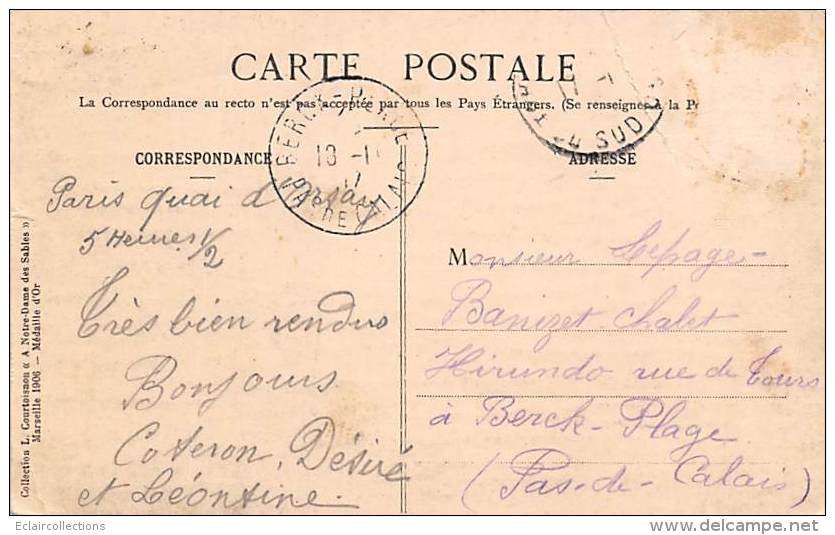 CARTE POSTALE
La Correspondance au recto n'est pas acceptée par tous les Pays Étrangers. (Se renseigner à la P
CORRESPONDANCE
Paris quai d'orsay
5 Heures 1/2
Très bien rendus
Bonjours
Coteron, Désiré
et Léontine
BERCK-PLAGE
PAS DE CALAIS
SUD
ADRESSE
Monsieur Lepage-
Banizet chalet
Hirundo rue de Tours
à Berck-Plage
(Pas-de-Calais)
Collection L. Courtoisnon « A Notre-Dame des Sables »
Marseille 1906 — Médaille d'Or
Eclaircollections
delcampe.net